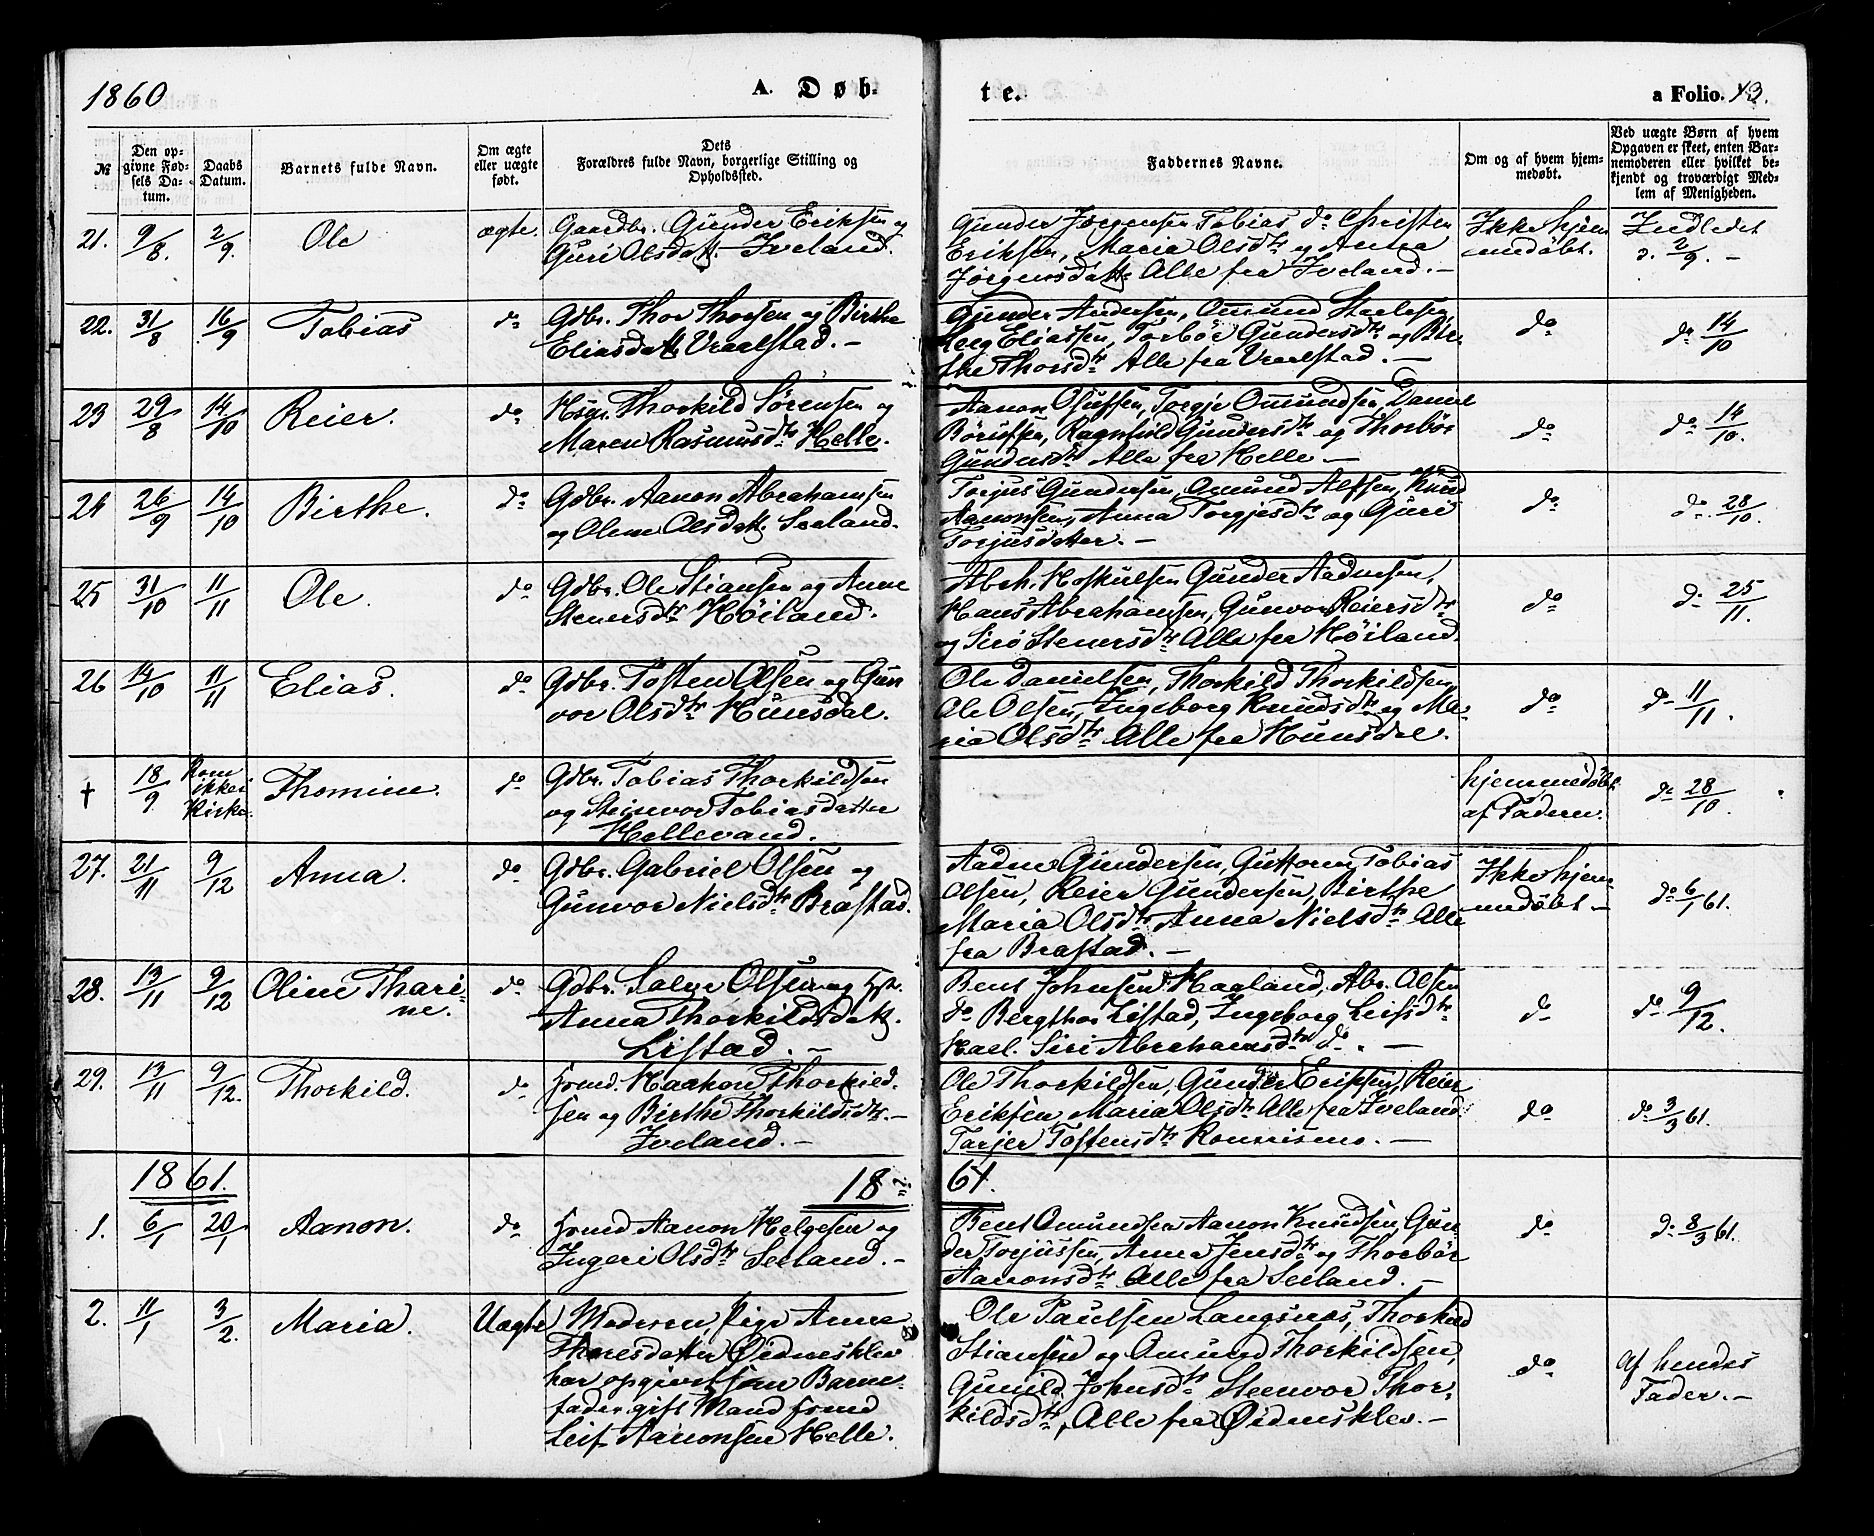 1860
A. Døb-
te.
a Folio. 13.
№
Den op-
givne Fød-
sels Da-
tum.
Daabs
Datum.
Barnets fulde Navn.
Om ægte
eller uægte
født.
Dets
Forældres fulde Navn, borgerlige Stilling og
Opholdssted.
Faddernes Navne.
Om og af hvem hjem-
medøbt.
Ved uægte Børn af hvem
Opgaven er skeet, enten Bar-
nemoderen eller hvilket be-
kjendt og troværdigt Med-
lem af Menigheden.
21. 9/8. 2/9. Ole ægte. Gaardbr. Gunder Eriksen og
Guri Olsdatt. Iveland.
Gunder Jørgensen Tobias do Christen
Eriksen, Maria Olsdtr og Anna
Jørgensdatt. Alle fra Iveland. —
Ikke hjem
medøbt.
Indledet
d. 2/9. —
22. 31/8 16/9 Tobias do Gdbr. Thor Thorsen og Birthe
Eliasdatt. Vraalstad. —
Gunder Andersen, Omund
Eliassen, Torbør Gundersdtr og Bir-
the Thorsdtr Alle fra Vraalstad. —
do
do 14/10
23 29/8 14/10 Reier. do Hsm. Thorkild Sørensen og
Maren Rasmusdtr Helle.
Aanon Olufsen, Torgje Omundsen, Daniel
Ragnhild Gundersdtr og Thorbør
Gundersdtr Alle fra Helle —
do
do 14/10.
24 26/9 14/10 Birthe. do Gdbr. Aanon Abrahamsen
og Olene Olsdatt. Seeland.
Torjus Gundersen, Omund Alfsen, Knud
Aanonsen, Anna Torgjesdtr og Guri
Torjusdatter. —
do
do 28/10.
25 31/10 11/11 Ole. do Gdbr. Ole Stiansen og Anne
Stenersdtr Høiland.
Abrh. Hoskulsen Gunder Aadnesen,
Hans Abrahamsen, Gunvor Reiersdtr
og Siri Stenersdtr Alle fra Høiland.
do
do 25/11.
26 14/10 11/11 Elias. do Gdbr. Tosten Olsen og Gun
vor Olsdtr Hunsdal.
Ole Danielsen, Thorkild Thorkildsen,
Ole Olsen, Ingeborg Knudsdtr og Ma-
ria Olsdtr Alle fra Hunsdal.
do
do 11/11.
† 18/9 Kom
ikke i
Kirke. Thomine. do Gdbr. Tobias Thorkildsen
og Steinvor Tobiasdatter
Hellevand.
hjemmedøbt
af Faderen.
do 28/10
27. 21/11 9/12 Anna. do Gdbr. Gabriel Olsen og
Gunvor Nielsdtr Brastad.
Aadne Gundersen, Guttorm, Tobias
Olsen, Reier Gundersen, Birthe
Maria Olsdtr Anna Nielsdtr Alle
fra Brastad. —
Ikke hjem-
medøbt —
do 6/1 61.
28. 13/11 9/12 Oline Thari-
ne. do Gdbr. Salve Olsen og Hst.
Anna Thorkildsdatt.
Listad. —
Bent Johnsen Haaland, Abr. Olsen
do Bergthor Listad, Ingeborg Leifsdtr
Siri Abrahamsdtr do. —
do
do 9/12.
29. 13/11 9/12. Thorkild. do Frmd. Haakon Thorkild-
sen og Birthe Thorkildsdtr. —
Iveland. —
Ole Thorkildsen, Gunder Eriksen, Reier
Eriksen Maria Olsdtr Alle fra Iveland
Torjer Tostensdtr
do
do 3/3 61.
1861.
18
61.
1. 6/1 20/1 Aanon. do Frmd Aanon Helgesen og
Ingeri Olsdtr Seeland. —
Bent Omundsen Aanon Knudsen, Gun-
der Torjussen, Anna Jensdtr og Thorbør
Aanonsdtr Alle fra Seeland. —
do
do 8/3 61.
2. 11/1 3/2. Maria. Uægte Moderen, Pige Anne
Thoresdatter Ødnesklev
har opgivet som Barne-
fader gift Mand Frmd
Leif Aanonsen Helle.
Ole Paulsen Langsnæs, Thorkild
Stiansen og Omund Thorkildsen,
Gunild Johnsdtr Steenvor Thor-
kildsdtr, Alle fra Ødnesklev. —
do
af hendes
Fader. —